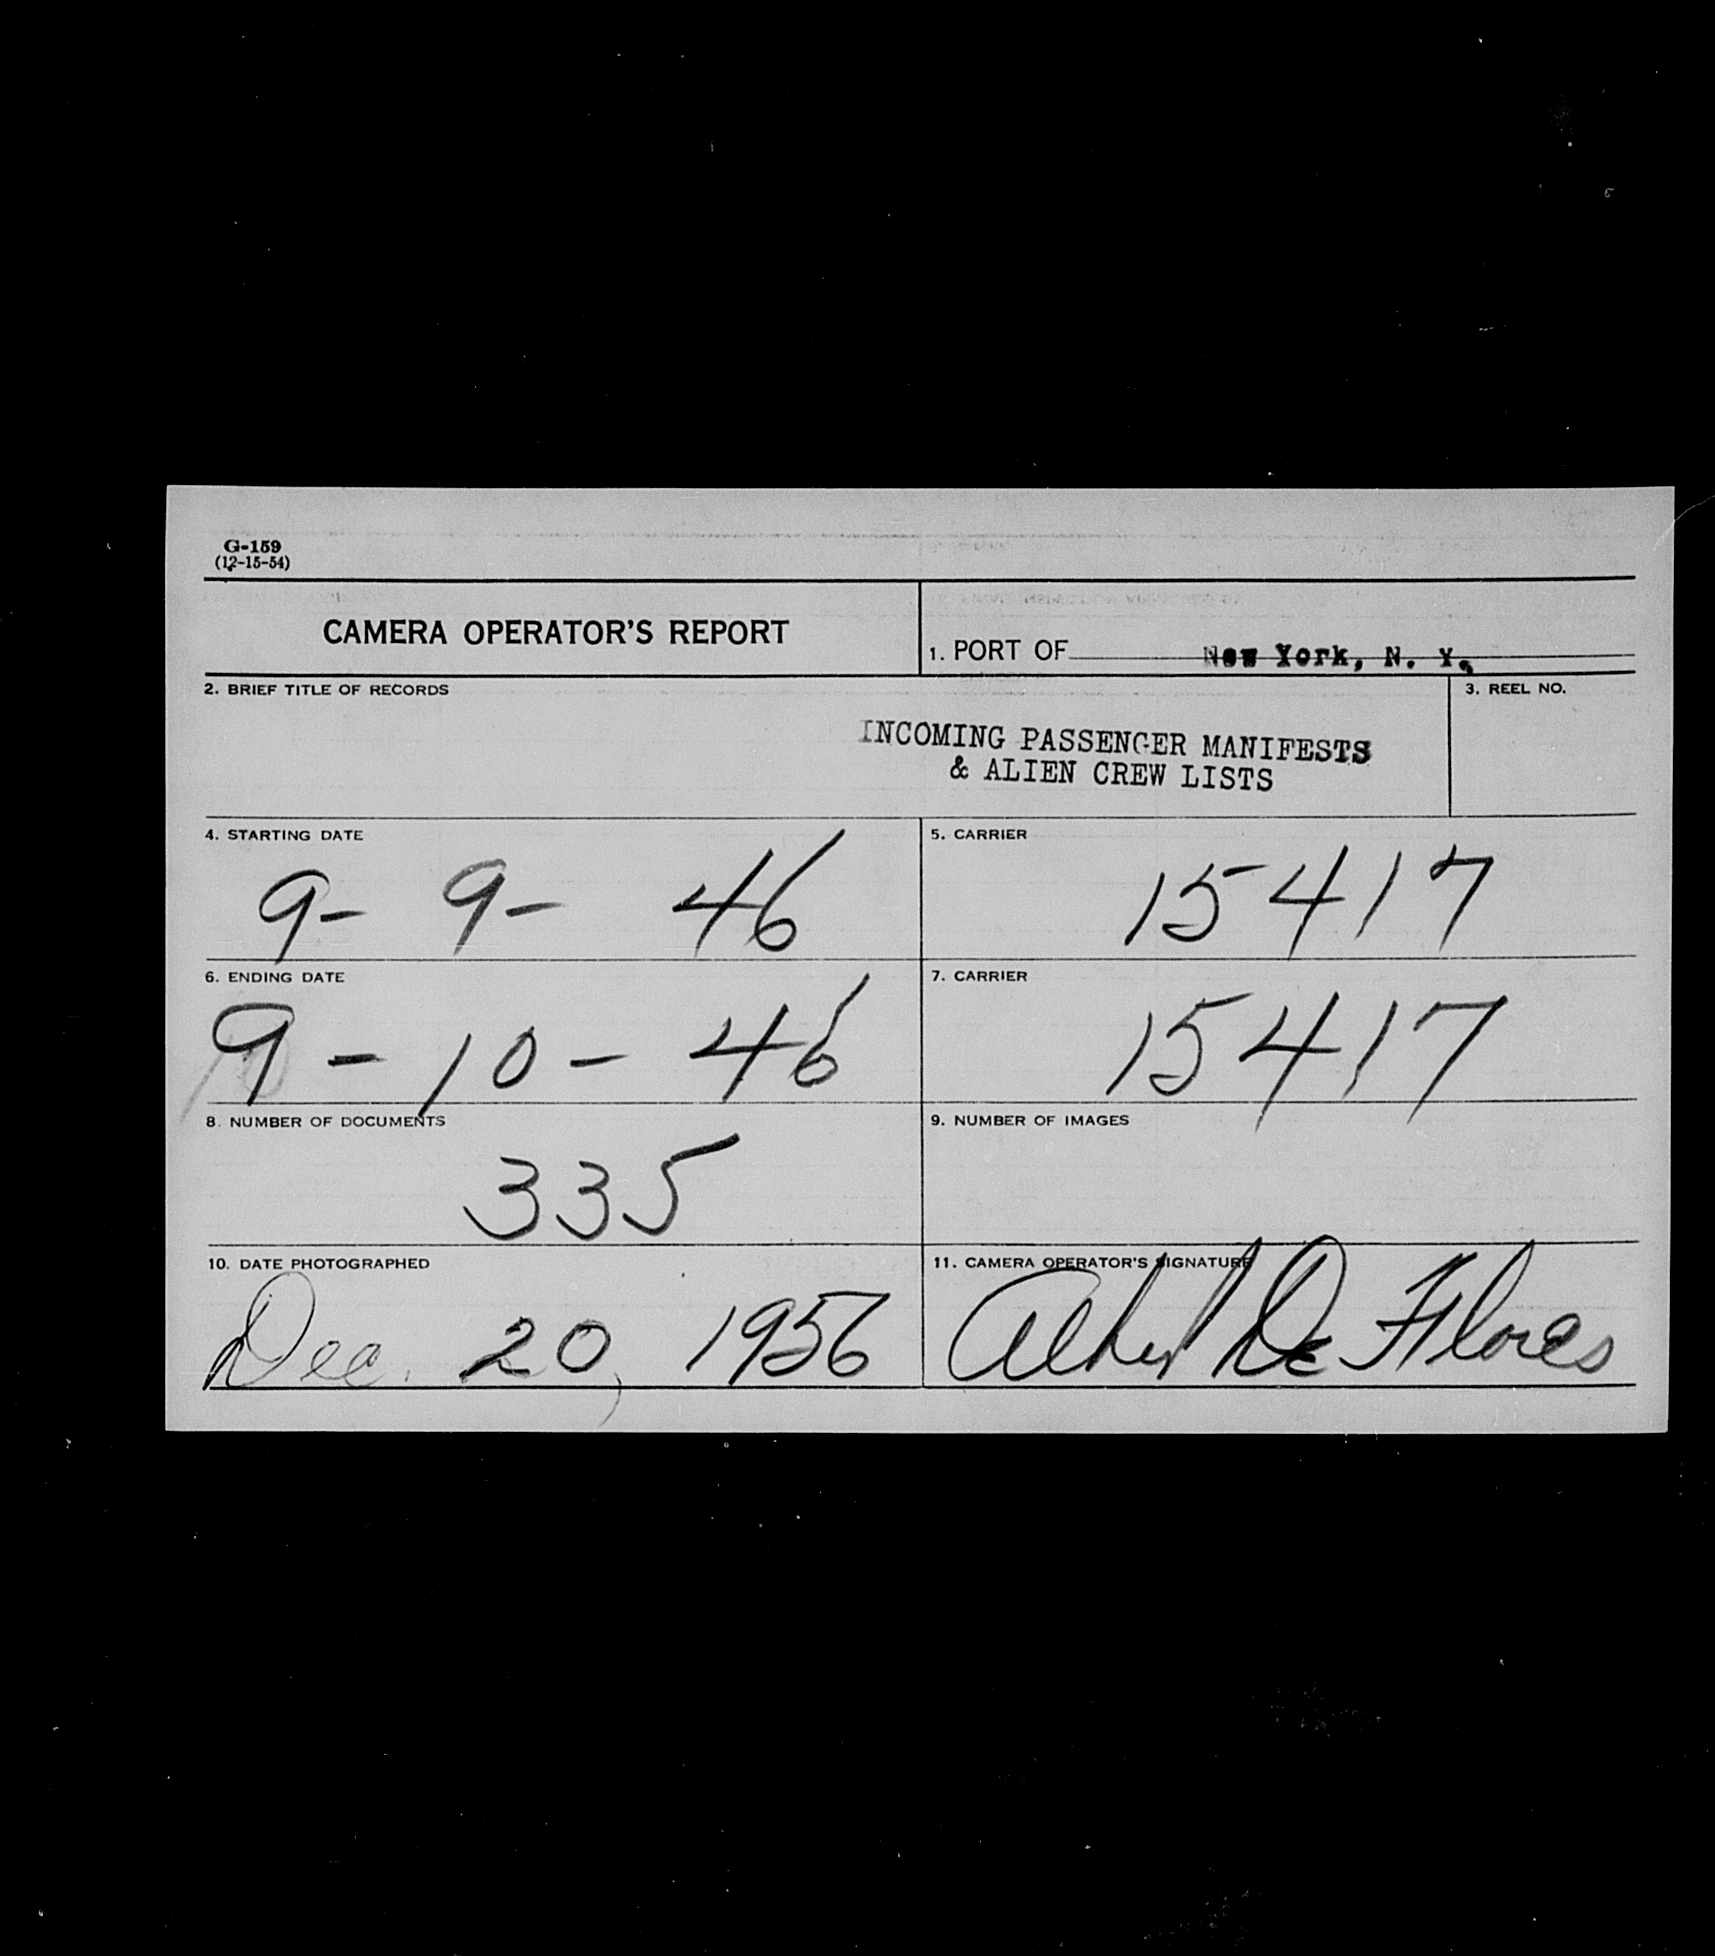 G-159
(12-15-54)
CAMERA OPERATOR'S REPORT
1. PORT OF New York, N. Y.
2. BRIEF TITLE OF RECORDS
3. REEL NO.
INCOMING PASSENGER MANIFESTS
& ALIEN CREW LISTS
4. STARTING DATE
9- 9- 46
5. CARRIER
15417
6. ENDING DATE
9-10-46
7. CARRIER
15417
8. NUMBER OF DOCUMENTS
335
9. NUMBER OF IMAGES
10. DATE PHOTOGRAPHED
Dec. 20, 1956
11. CAMERA OPERATOR'S SIGNATURE
De Flores